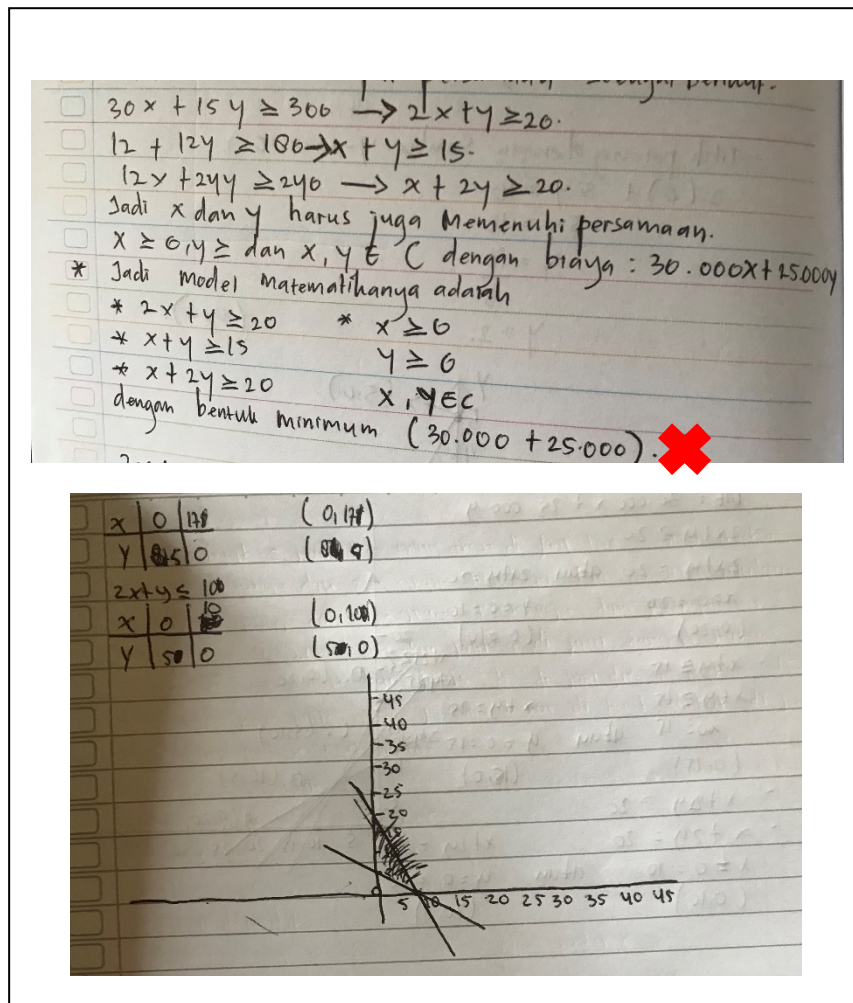 30x + 15y ≥ 300 → 2x+y ≥20.
12 + 12y ≥ 180 → x + y ≥ 15.
12x + 24y ≥ 240 → x + 2y ≥ 20.
Jadi x dan y harus juga memenuhi persamaan.
x ≥ 0, y ≥ dan x, y ∈ C dengan biaya : 30.000x + 25000y
* Jadi model matematikanya adalah
* 2x + y ≥ 20 * x ≥ 0
* x + y ≥ 15 y ≥ 0
* x + 2y ≥ 20 x, y ∈ C
dengan bentuk minimum (30.000 + 25.000).
x 0
y 0
2x+y ≤ 100
x 0
y 50 0
45
40
35
30
25
20
0 5 10 15 20 25 30 35 40 45